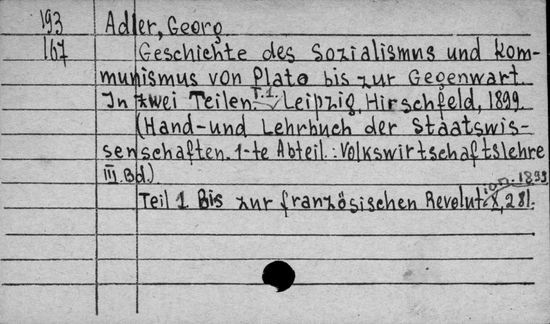 193 Adler, Georg
167 Geschichte des Sozialismus und Kom-
munismus von Plato bis zur Gegenwart.
In zwei Teilen. T.1. Leipzig, Hirschfeld, 1899.
(Hand-und Lehrbuch der Staatswis-
senschaften. 1-te Abteil.: Volkswirtschaftslehre
III. Bd.)
Teil 1. Bis zur französischen Revolution. 1899
X, 281.